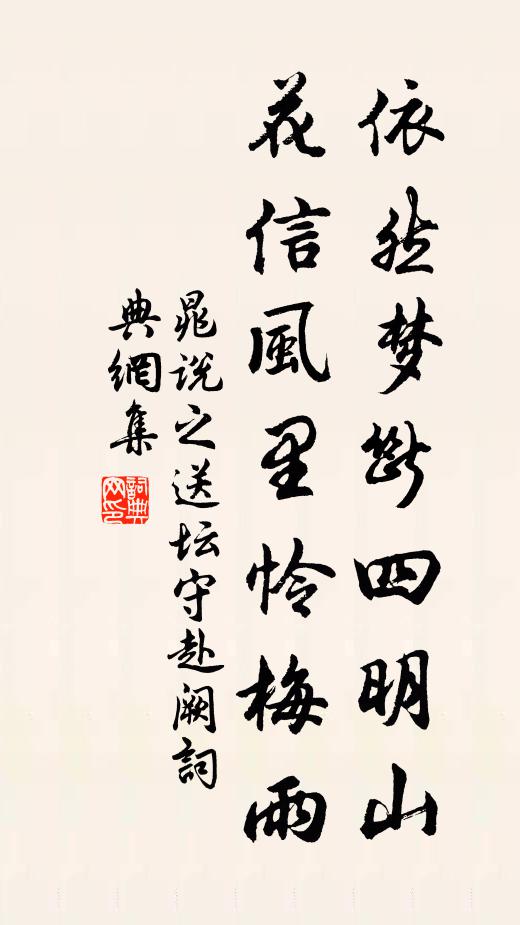 依然梦断四明山
花信風里怜梅雨
晁说之送坛守赴阙詞
典網集
詞典网印